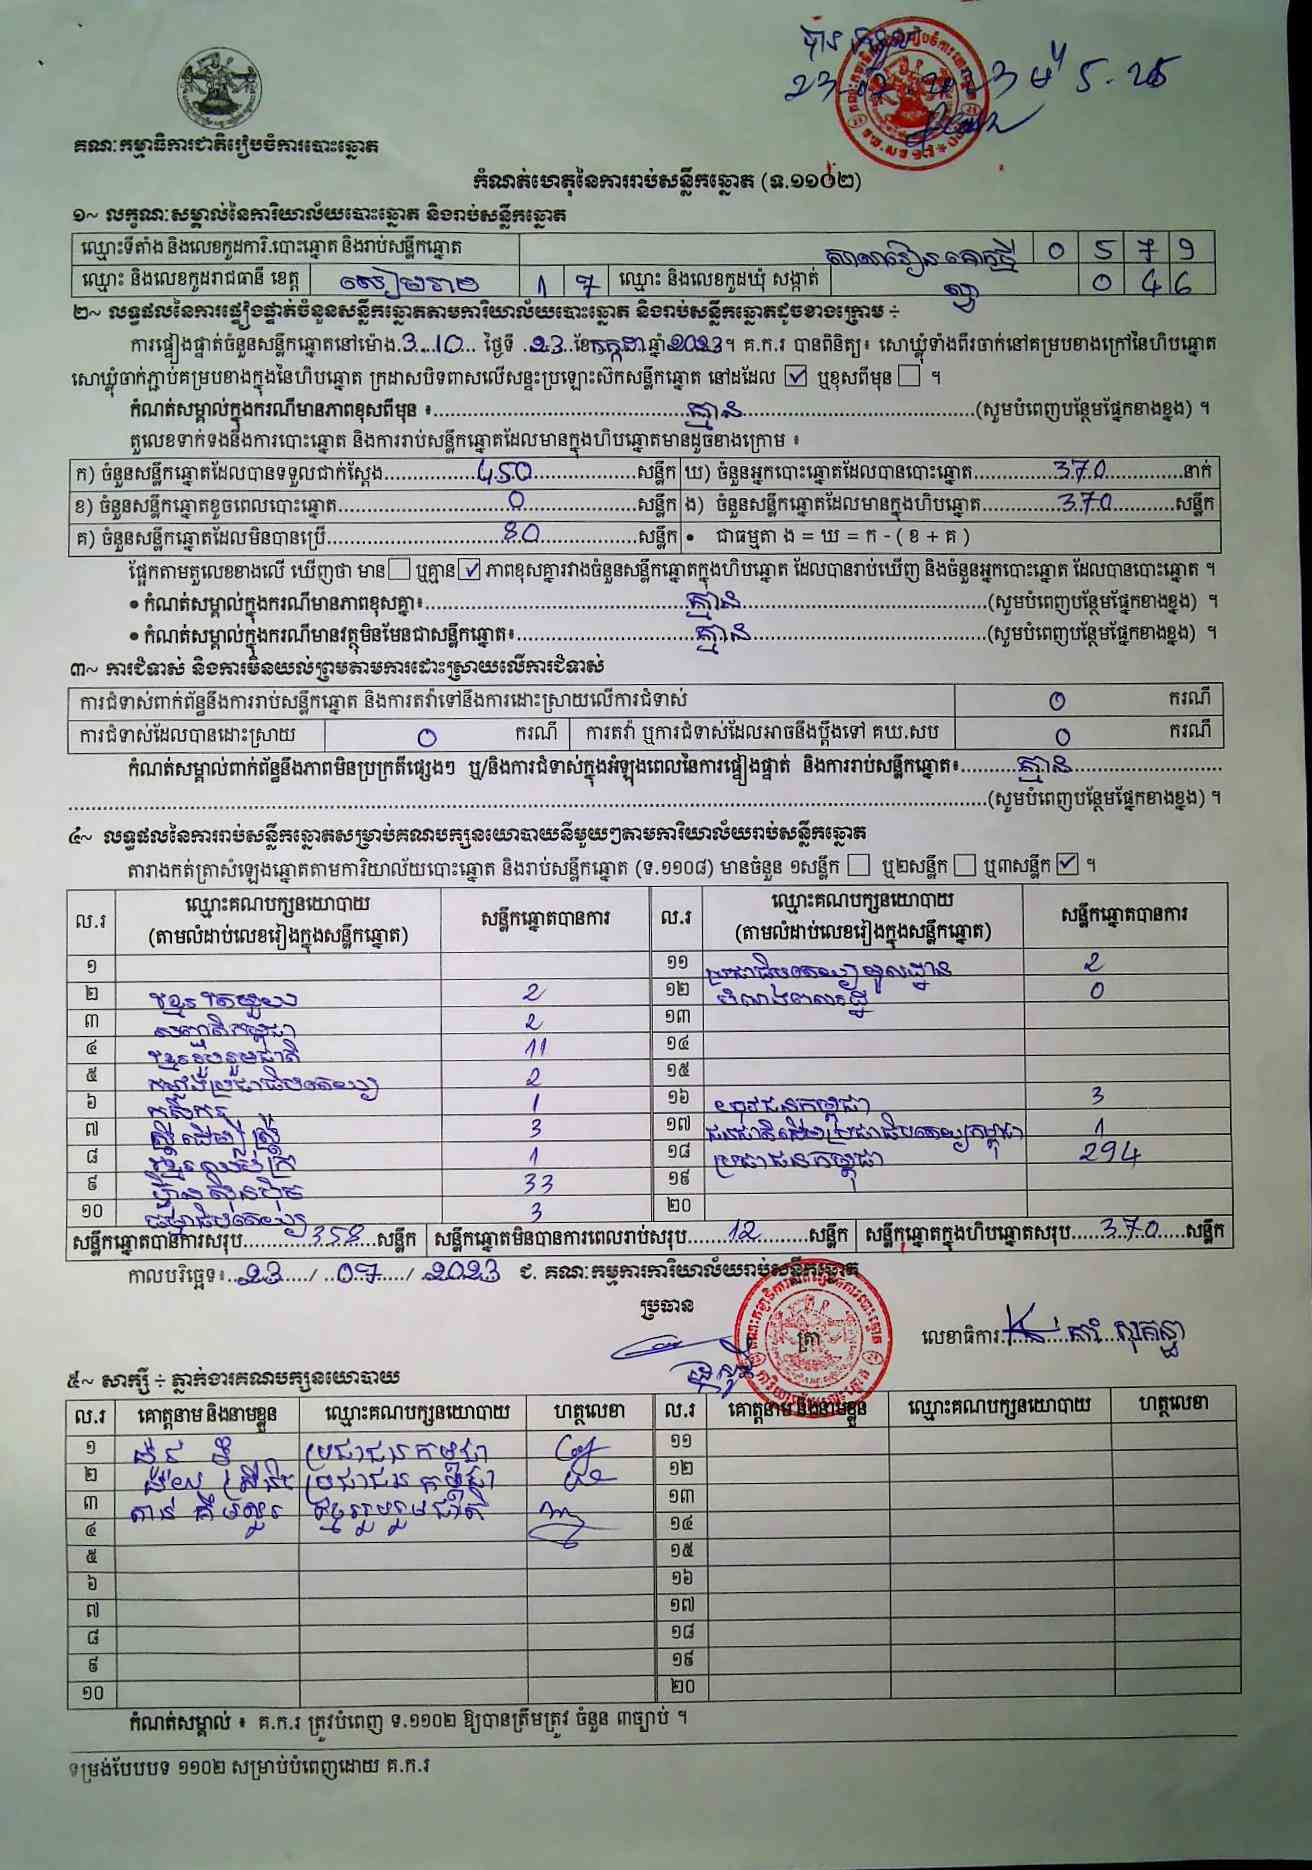 ២3 ម៉ 5 . ២5
គណៈកម្មាធិការជាតិរៀបចំការបោះឆ្នោត
កំណត់ហេតុនៃការរាប់សន្លឹកឆ្នោត (ទ.១១០២)
១~ លក្ខណៈសម្គាល់នៃការិយាល័យបោះឆ្នោត និងរាប់សន្លឹកឆ្នោត
ឈ្មោះទីតាំង និងលេខកូដការិ.បោះឆ្នោត និងរាប់សន្លឹកឆ្នោត សាលារៀន គោកថ្មី 0 5 7 9
ឈ្មោះ និងលេខកូដរាជធានី ខេត្ត សៀមរាប 1 7 ឈ្មោះ និងលេខកូដឃុំ សង្កាត់ 0 4 6
២~ លទ្ធផលនៃការផ្ទៀងផ្ទាត់ចំនួនសន្លឹកឆ្នោតតាមការិយាល័យបោះឆ្នោត និងរាប់សន្លឹកឆ្នោតដូចខាងក្រោម ÷
ការផ្ទៀងផ្ទាត់ចំនួនសន្លឹកឆ្នោតនៅម៉ោង.3.10... ថ្ងៃទី .23..ខែកក្កដា.ឆ្នាំ2023។ គ.ក.រ បានពិនិត្យ៖ សោឃ្លុំទាំងពីរចាក់នៅគម្របខាងក្រៅនៃហិបឆ្នោត
សោឃ្លុំចាក់ភ្ជាប់គម្របខាងក្នុងនៃហិបឆ្នោត ក្រដាសបិទពាសលើសន្ទះប្រឡោះស៊កសន្លឹកឆ្នោត នៅដដែល ☑ ឬខុសពីមុន ☐ ។
កំណត់សម្គាល់ក្នុងករណីមានភាពខុសពីមុន ៖...គ្មាន...(សូមបំពេញបន្ថែមផ្នែកខាងខ្នង) ។
តួលេខទាក់ទងនឹងការបោះឆ្នោត និងការរាប់សន្លឹកឆ្នោតដែលមានក្នុងហិបឆ្នោតមានដូចខាងក្រោម ៖
ក) ចំនួនសន្លឹកឆ្នោតដែលបានទទួលជាក់ស្តែង...450...សន្លឹក ឃ) ចំនួនអ្នកបោះឆ្នោតដែលបានបោះឆ្នោត...370...នាក់
ខ) ចំនួនសន្លឹកឆ្នោតខូចពេលបោះឆ្នោត...0...សន្លឹក ង) ចំនួនសន្លឹកឆ្នោតដែលមានក្នុងហិបឆ្នោត...370...សន្លឹក
គ) ចំនួនសន្លឹកឆ្នោតដែលមិនបានប្រើ...80...សន្លឹក • ជាធម្មតា ង = ឃ = ក - ( ខ + គ )
ផ្អែកតាមតួលេខខាងលើ ឃើញថា មាន ☐ ឬគ្មាន ☑ ភាពខុសគ្នារវាងចំនួនសន្លឹកឆ្នោតក្នុងហិបឆ្នោត ដែលបានរាប់ឃើញ និងចំនួនអ្នកបោះឆ្នោត ដែលបានបោះឆ្នោត ។
• កំណត់សម្គាល់ក្នុងករណីមានភាពខុសគ្នា៖...គ្មាន...(សូមបំពេញបន្ថែមផ្នែកខាងខ្នង) ។
• កំណត់សម្គាល់ក្នុងករណីមានវត្ថុមិនមែនជាសន្លឹកឆ្នោត៖...គ្មាន...(សូមបំពេញបន្ថែមផ្នែកខាងខ្នង) ។
៣~ ការជំទាស់ និងការមិនយល់ព្រមតាមការដោះស្រាយលើការជំទាស់
ការជំទាស់ពាក់ព័ន្ធនឹងការរាប់សន្លឹកឆ្នោត និងការតវ៉ាទៅនឹងការដោះស្រាយលើការជំទាស់ 0 ករណី
ការជំទាស់ដែលបានដោះស្រាយ 0 ករណី ការតវ៉ា ឬការជំទាស់ដែលអាចនឹងប្តឹងទៅ គឃ.សប 0 ករណី
កំណត់សម្គាល់ពាក់ព័ន្ធនឹងភាពមិនប្រក្រតីផ្សេងៗ ឬ/និងការជំទាស់ក្នុងអំឡុងពេលនៃការផ្ទៀងផ្ទាត់ និងការរាប់សន្លឹកឆ្នោត៖...គ្មាន...
...(សូមបំពេញបន្ថែមផ្នែកខាងខ្នង) ។
៤~ លទ្ធផលនៃការរាប់សន្លឹកឆ្នោតសម្រាប់គណបក្សនយោបាយនីមួយៗតាមការិយាល័យរាប់សន្លឹកឆ្នោត
តារាងកត់ត្រាសំឡេងឆ្នោតតាមការិយាល័យបោះឆ្នោត និងរាប់សន្លឹកឆ្នោត (ទ.១១០៨) មានចំនួន ១សន្លឹក ☐ ឬ២សន្លឹក ☐ ឬ៣សន្លឹក ☑ ។
ល.រ ឈ្មោះគណបក្សនយោបាយ សន្លឹកឆ្នោតបានការ ល.រ ឈ្មោះគណបក្សនយោបាយ សន្លឹកឆ្នោតបានការ
(តាមលំដាប់លេខរៀងក្នុងសន្លឹកឆ្នោត) (តាមលំដាប់លេខរៀងក្នុងសន្លឹកឆ្នោត)
១ ១១ ប្រជាធិបតេយ្យមូលដ្ឋាន 2
២ ខ្មែរតែមួយ 2 ១២ បំណងពលរដ្ឋ 0
៣ សញ្ជាតិកម្ពុជា 2 ១៣
៤ ខ្មែររួបរួមជាតិ 11 ១៤
៥ កម្លាំងប្រជាធិបតេយ្យ 2 ១៥
៦ កសិករ 1 ១៦ យុវជនកម្ពុជា 3
៧ ស្ត្រីដើម្បីស្ត្រី 3 ១៧ ជនជាតិដើមប្រជាធិបតេយ្យកម្ពុជា 1
៨ ខ្មែរឈប់ក្រ 1 ១៨ ប្រជាជនកម្ពុជា 294
៩ ហ៊្វុនស៊ិនប៉ិច 33 ១៩
១០ ធម្មាធិបតេយ្យ 3 ២០
សន្លឹកឆ្នោតបានការសរុប...358...សន្លឹក សន្លឹកឆ្នោតមិនបានការពេលរាប់សរុប...12...សន្លឹក សន្លឹកឆ្នោតក្នុងហិបឆ្នោតសរុប...370...សន្លឹក
កាលបរិច្ឆេទ៖..23../..07../..2023 ជ. គណៈកម្មការការិយាល័យរាប់សន្លឹកឆ្នោត
ប្រធាន
ត្រា
លេខាធិការ
៥~ សាក្សី ÷ ភ្នាក់ងារគណបក្សនយោបាយ
ល.រ គោត្តនាម និងនាមខ្លួន ឈ្មោះគណបក្សនយោបាយ ហត្ថលេខា ល.រ គោត្តនាម និងនាមខ្លួន ឈ្មោះគណបក្សនយោបាយ ហត្ថលេខា
១ ប្រជាជនកម្ពុជា ១១
២ ប្រជាជនកម្ពុជា ១២
៣ ខ្មែររួបរួមជាតិ ១៣
៤ ១៤
៥ ១៥
៦ ១៦
៧ ១៧
៨ ១៨
៩ ១៩
១០ ២០
កំណត់សម្គាល់ ៖ គ.ក.រ ត្រូវបំពេញ ទ.១១០២ ឱ្យបានត្រឹមត្រូវ ចំនួន ៣ច្បាប់ ។
ទម្រង់បែបបទ ១១០២ សម្រាប់បំពេញដោយ គ.ក.រ